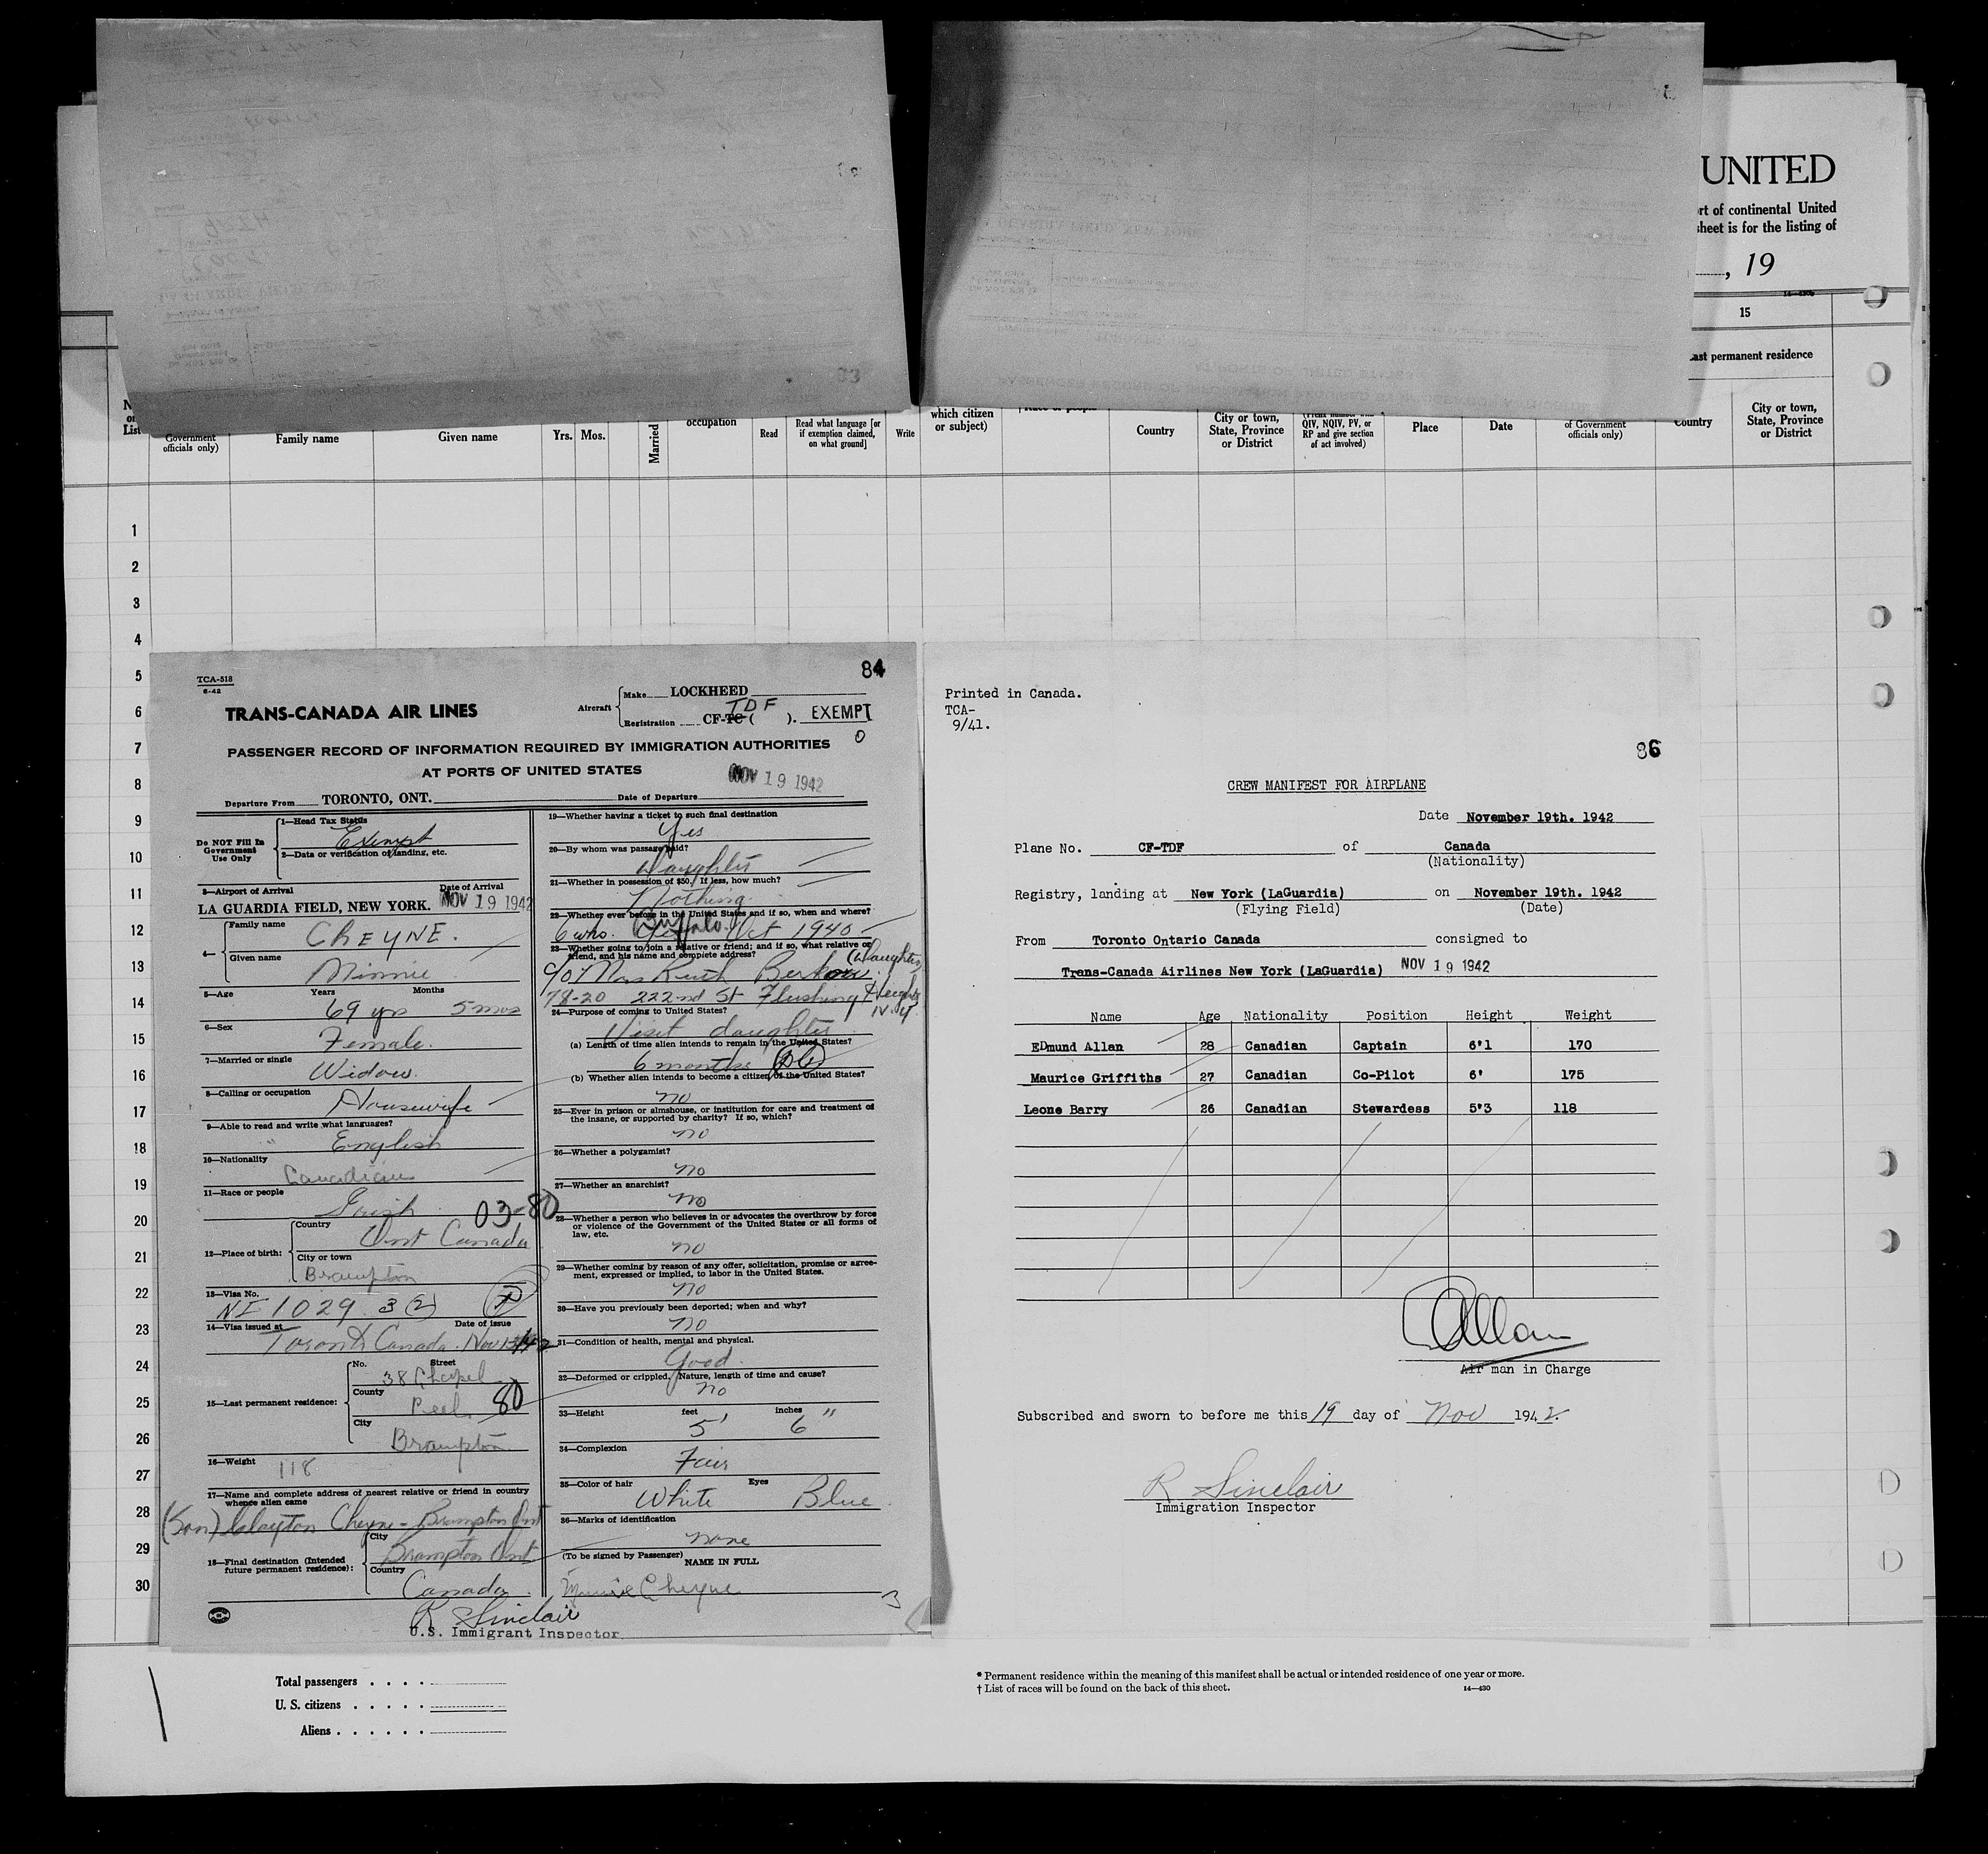 UNITED
rt of continental United
sheet is for the listing of
, 19
15
ast permanent residence
List
Government officials only)
Family name
Given name
Yrs. Mos.
Married
occupation
Read
Read what language [or if exemption claimed, on what ground]
Write
which citizen or subject)
Country
City or town, State, Province or District
QIV, NQIV, PV, or RP and give section of act involved)
Place
Date
of Government officials only)
Country
City or town, State, Province or District
1
2
3
4
5
6
7
8
9
10
11
12
13
14
15
16
17
18
19
20
21
22
23
24
25
26
27
28
29
30
TCA-518
6-42
84
TRANS-CANADA AIR LINES
Aircraft
Make LOCKHEED
Registration CF-TC ( TDF ). EXEMPT
0
PASSENGER RECORD OF INFORMATION REQUIRED BY IMMIGRATION AUTHORITIES
AT PORTS OF UNITED STATES
NOV 19 1942
Departure From TORONTO, ONT. Date of Departure
Do NOT Fill In Government Use Only
1—Head Tax Status
Exempt
2—Data or verification of landing, etc.
3—Airport of Arrival Date of Arrival
LA GUARDIA FIELD, NEW YORK. NOV 19 1942
4— Family name
CHEYNE.
Given name
Minnie
5—Age Years Months
69 yrs 5 mos
6—Sex
Female.
7—Married or single
Widow.
8—Calling or occupation
Housewife
9—Able to read and write what languages?
English
10—Nationality
Canadian
11—Race or people
Irish 03-80
12—Place of birth: Country
Ont Canada
City or town
Brampton
13—Visa No.
NI 1029 3(2)
14—Visa issued at Date of issue
Toronto Canada. Nov
15—Last permanent residence: No. Street
38 Chapel
County
Peel 80
City
Brampton
16—Weight
118
17—Name and complete address of nearest relative or friend in country whence alien came
(Son) Clayton Cheyne - Brampton Ont
18—Final destination (Intended future permanent residence): City
Brampton Ont
Country
Canada.
R Sinclair
U.S. Immigrant Inspector
19—Whether having a ticket to such final destination
Yes
20—By whom was passage paid?
Daughter
21—Whether in possession of $50. If less, how much?
Nothing
22—Whether ever before in the United States and if so, when and where?
6 wks. Buffalo. Oct 1940
23—Whether going to join a relative or friend; and if so, what relative or friend, and his name and complete address?
(Daughter)
c/o Mrs Ruth
78-20 222nd St Flushing Heights
N.Y.
24—Purpose of coming to United States?
Visit daughter
(a) Length of time alien intends to remain in the United States?
6 months
(b) Whether alien intends to become a citizen of the United States?
no
25—Ever in prison or almshouse, or institution for care and treatment of the insane, or supported by charity? If so, which?
no
26—Whether a polygamist?
no
27—Whether an anarchist?
no
28—Whether a person who believes in or advocates the overthrow by force or violence of the Government of the United States or all forms of law, etc.
no
29—Whether coming by reason of any offer, solicitation, promise or agreement, expressed or implied, to labor in the United States.
no
30—Have you previously been deported; when and why?
no
31—Condition of health, mental and physical.
Good.
32—Deformed or crippled. Nature, length of time and cause?
no
33—Height feet inches
5' 6"
34—Complexion
Fair
35—Color of hair Eyes
White Blue
36—Marks of identification
none
(To be signed by Passenger) NAME IN FULL
Minnie Cheyne
Printed in Canada.
TCA-
9/41.
86
CREW MANIFEST FOR AIRPLANE
Date November 19th. 1942
Plane No. CF-TDF of Canada
(Nationality)
Registry, landing at New York (LaGuardia) on November 19th. 1942
(Flying Field) (Date)
From Toronto Ontario Canada consigned to
Trans-Canada Airlines New York (LaGuardia) NOV 19 1942
Name Age Nationality Position Height Weight
EDmund Allan 28 Canadian Captain 6'1 170
Maurice Griffiths 27 Canadian Co-Pilot 6' 175
Leone Barry 26 Canadian Stewardess 5'3 118
Allan
Air man in Charge
Subscribed and sworn to before me this 19 day of Nov 1942.
R Sinclair
Immigration Inspector
Total passengers
U. S. citizens
Aliens
* Permanent residence within the meaning of this manifest shall be actual or intended residence of one year or more.
† List of races will be found on the back of this sheet.
14—430